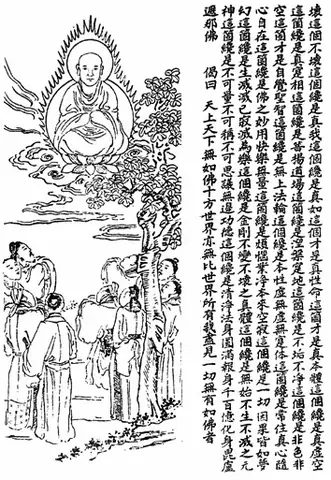 壞這個不壞這個纔是真我這個才是真性命這箇才是真本體這箇才是真虛空
這箇纔是真實相這箇纔是菩提道場這箇纔是涅槃定地這箇纔是不垢不淨這個纔是非色非
空這箇才是自覺聖智這箇纔是無上法輪這個纔是本性虛無虛無實體這箇纔是常住真心隨
心自在這箇纔是佛之妙用快樂無量這箇纔是煩惱業淨本來空寂這個纔是一切因果皆如夢
幻這箇纔是生滅滅已寂滅為樂這個纔是金剛不變不壞之真體這個纔是無始不生不滅之元
神這箇纔是不可量不可稱不可思議無邊功德這個纔是清淨法身圓滿報身千百億化身毘盧
遮那佛 偈曰 天上天下無如佛十方世界亦無比世界所有我盡見一切無有如佛者